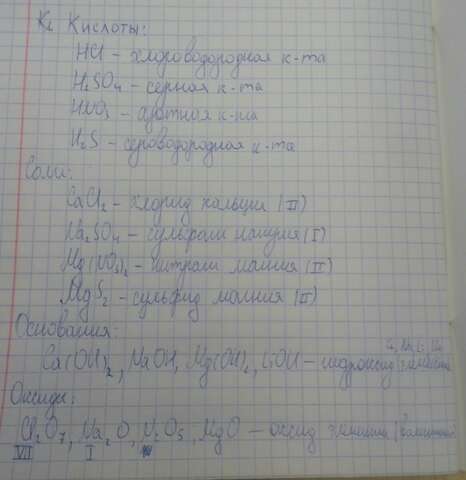 К. Кислоты:
HCl - хлороводородная к-та
H₂SO₄ - серная к-та
HNO₃ - азотная к-та
H₂S - сероводородная к-та
Соли:
CaCl₂ - хлорид кальция (II)
Na₂SO₄ - сульфат натрия (I)
Mg(NO₃)₂ - нитрат магния (II)
MgS₂ - сульфид магния (II)
Основания:
Ca(OH)₂, NaOH, Mg(OH)₂, LiOH - гидроксид
Оксиды:
Cl₂O₇, Na₂O, N₂O₅, MgO - оксид
VII I